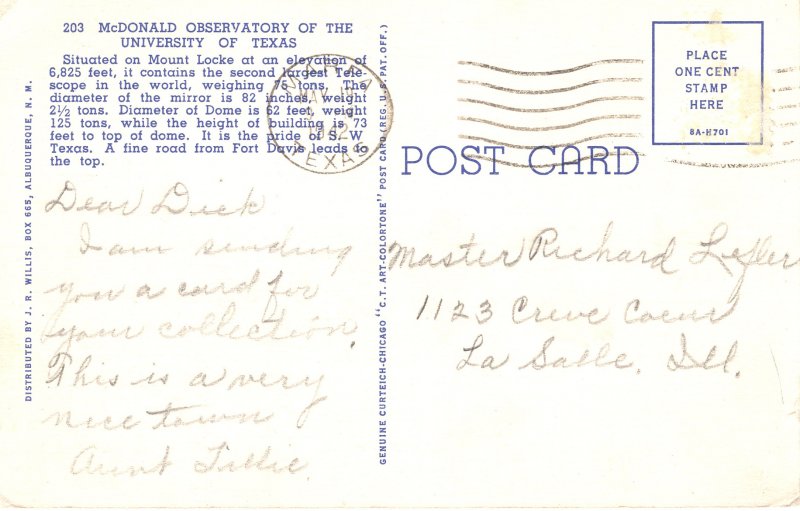 203 McDONALD OBSERVATORY OF THE
UNIVERSITY OF TEXAS
Situated on Mount Locke at an elevation of
6,825 feet, it contains the second largest Tele-
scope in the world, weighing 75 tons. The
diameter of the mirror is 82 inches, weight
2½ tons. Diameter of Dome is 62 feet, weight
125 tons, while the height of building is 73
feet to top of dome. It is the pride of S. W
Texas. A fine road from Fort Davis leads to
the top.
Dear Dick
I am sending
you a card for
your collection.
This is a very
nice town
Aunt Tillie.
DISTRIBUTED BY J. R. WILLIS, BOX 665, ALBUQUERQUE, N. M.
GENUINE CURTEICH-CHICAGO "C.T. ART-COLORTONE" POST CARD (REG. U.S. PAT. OFF.)
MARFA
MAY
1942
TEXAS
POST CARD
PLACE
ONE CENT
STAMP
HERE
8A-H701
Master Richard Lefler
1123 Creve Coeur
La Salle, Ill.